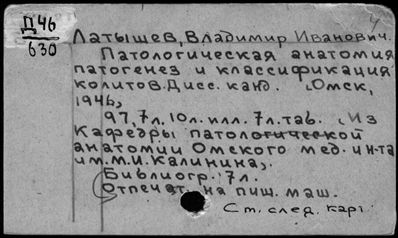 Д46
630
4
Латышев, Владимир Иванович.
Патологическая анатомия
патогенез и классификация
колитов. Дисс. канд. Омск,
1946,
97,7л. 10л. илл. 7л. таб. Из
Кафедры патологической
анатомии Омского мед. ин-та
им. М.И. Калинина,.
Библиогр: 7л.
Отпечат. на пиш. маш.
См. след. карт